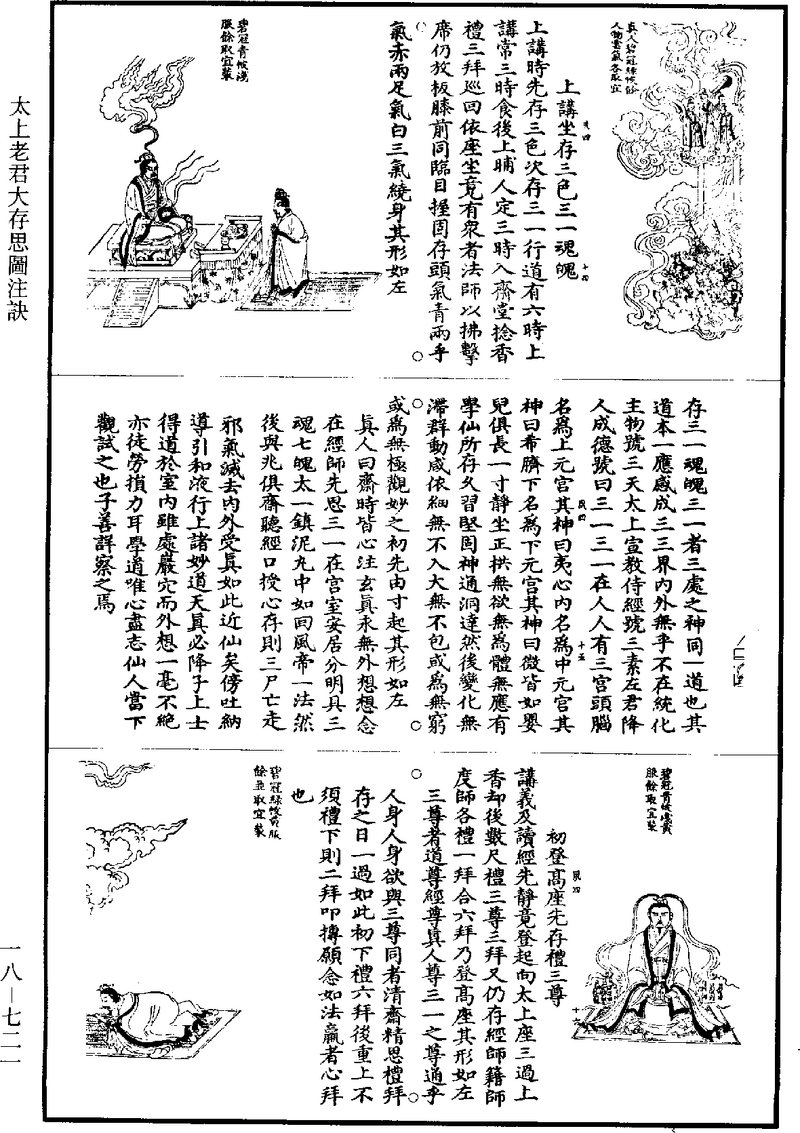 太上老君大存思圖注訣
一八—七二一
真人碧冠綠帔餘
人物雲氣各取宜
上講坐存三色三一魂魄
上講時先存三色次存三一行道有六時上
講常三時食後上晡人定三時入齋堂捻香
禮三拜巡回依座坐竟有衆者法師以拂擊
席仍放板膝前同臨目握固存頭氣青兩手
氣赤兩足氣白三氣繞身其形如左
碧冠青帔淺
服餘取宜裝
存三一魂魄三一者三處之神同一道也其
道本一應感成三三界内外無乎不在統化
主物號三天太上宣教侍經號三素左君降
人成德號曰三一三一在人人有三宫頭腦
名爲上元宫其神曰夷心内名爲中元宫其
神曰希臍下名爲下元宫其神曰微皆如嬰
兒俱長一寸靜坐正拱無欲無爲體無應有
學仙所存久習堅固神通洞達然後變化無
滯群動咸依細無不入大無不包或爲無窮
或爲無極觀妙之初先由寸起其形如左
真人曰齋時皆心注玄真永無外想想念
在經師先思三一在宫室安居分明具三
魂七魄太一鎮泥丸中如回風帝一法然
後與兆俱齋聽經口授心存則三尸亡走
邪氣滅去内外受真如此近仙矣傍吐納
導引和液行上諸妙道天真必降子上士
得道於室内雖處巖穴而外想一毫不絶
亦徒勞損力耳學道唯心盡志仙人當下
觀試之也子善詳察之焉
碧冠青帔雲黄
服餘取宜裝
初登高座先存禮三尊
講義及讀經先靜竟登起向太上座三過上
香却後數尺禮三尊三拜又仍存經師籍師
度師各禮一拜合六拜乃登高座其形如左
三尊者道尊經尊真人尊三一之尊通乎
人身人身欲與三尊同者清齋精思禮拜
存之日一過如此初下禮六拜後重上不
須禮下則二拜叩搏願念如法羸者心拜
也
碧冠綠帔黄服
餘並取宜裝